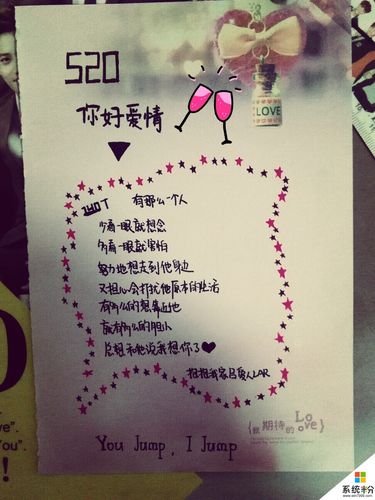 520
你好爱情
LOVE
有那么一个人
少看一眼就想念
多看一眼就害怕
努力地想走到他身边
又担心会打扰他原本的生活
有多么的想靠近他
就有多么的胆小
总想和他说我想你了
Love
{我期待的}
You Jump , I Jump
ve".
You".
!
系统粉
www.win7999.com